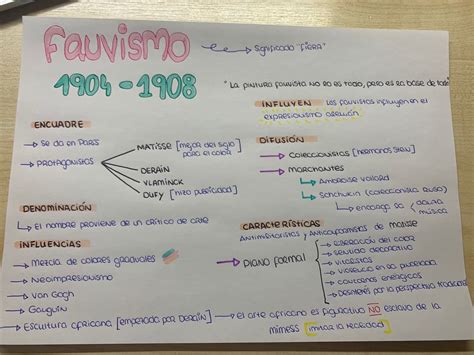 Fauvismo
Significado "FIERA"
1904-1908
"La pintura fauvista no es todo, pero es la base de todo"
ENCUADRE
→ Se da en París
→ Protagonistas
MATISSE [mejor del siglo
para el color
DERAIN
VLAMINCK
DUFY [hizo publicidad]
INFLUYEN Los fauvistas influyen en el
expresionismo alemán
DIFUSIÓN
→ Coleccionistas [hermanos Stein]
→ Marchantes
→ Ambroise Vollard
→ Schchukin (coleccionista ruso)
→ encarga la
música
DENOMINACIÓN
→ El nombre proviene de un crítico de arte
INFLUENCIAS
→ Mezcla de colores graduales
→ Neoimpresionismo
→ Van Gogh
→ Gauguin
→ Escultura africana [empezada por DERAIN] → el arte africano es figurativo NO esclavo de la
mímesis [imitar la realidad]
CARACTERÍSTICAS
Antimiméticos y Anticopiamistas de Matisse
→ Plano formal
→ liberación del color
→ sentido decorativo
→ violentos
→ violencia en la pincelada
→ contornos enérgicos
→ Desinterés por la perspectiva tradicional